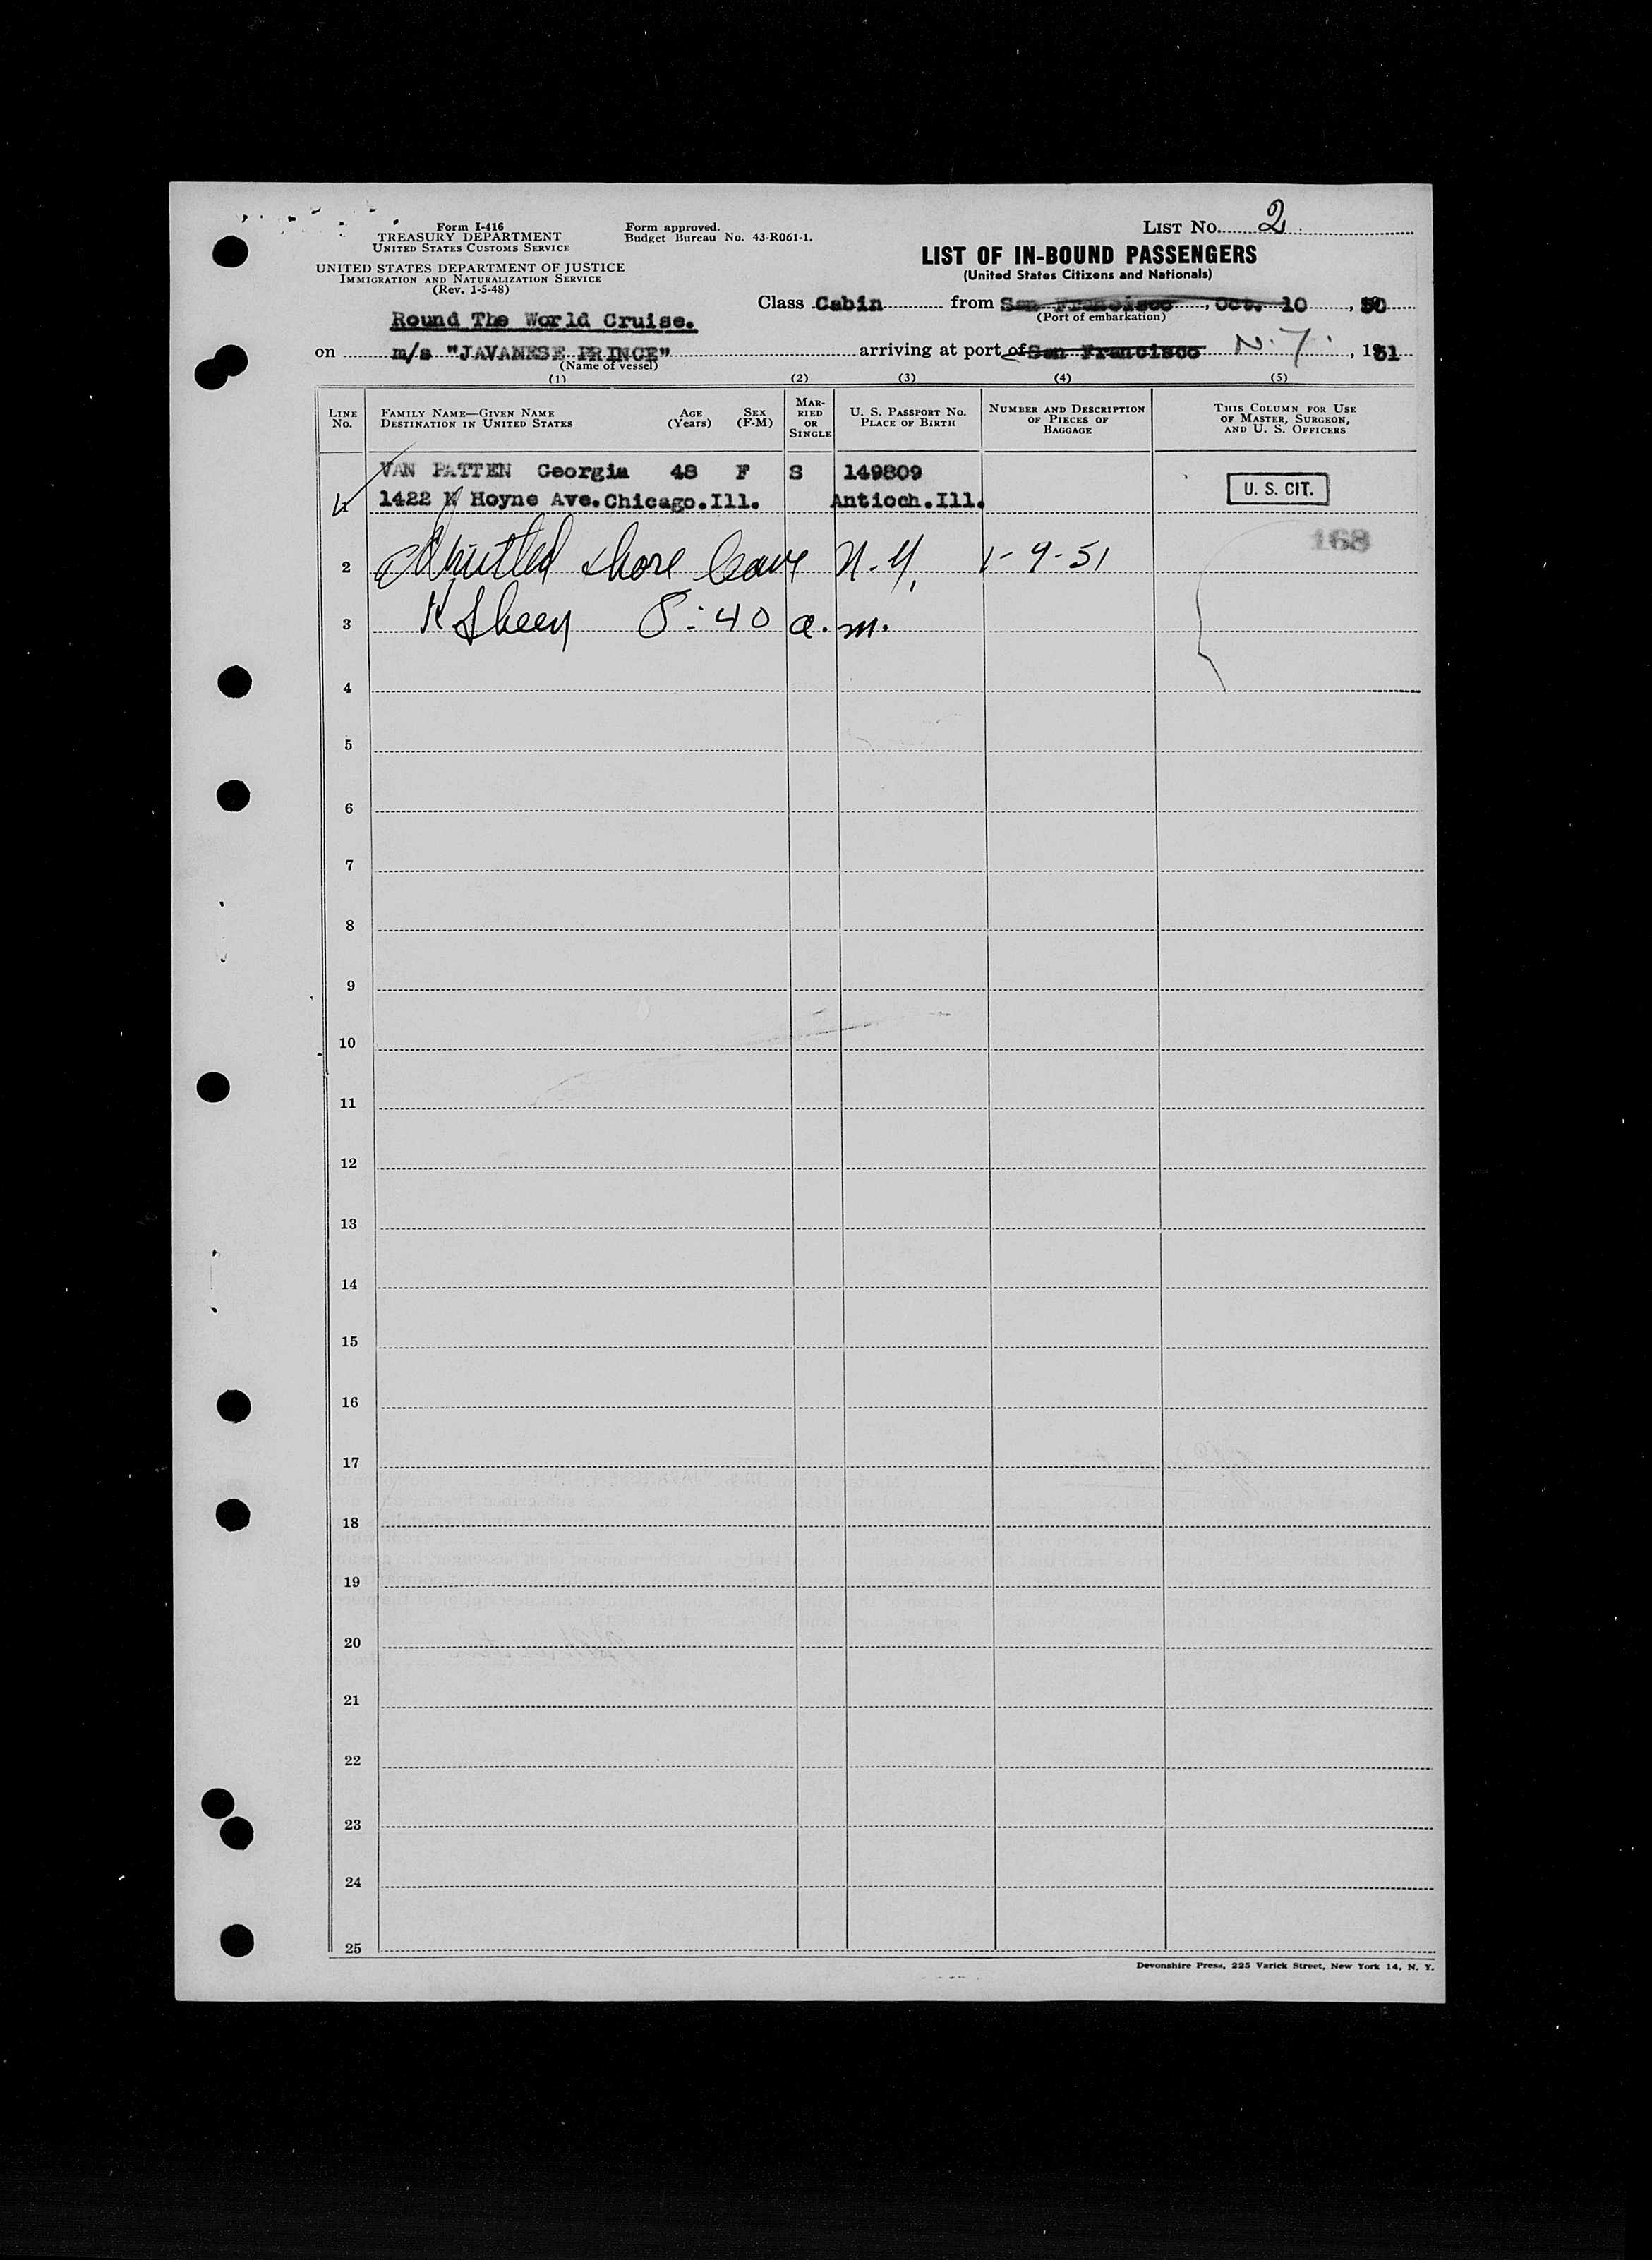 LIST No. 2
Form I-416
TREASURY DEPARTMENT
UNITED STATES CUSTOMS SERVICE
Form approved.
Budget Bureau No. 43-R061-1.
UNITED STATES DEPARTMENT OF JUSTICE
IMMIGRATION AND NATURALIZATION SERVICE
(Rev. 1-5-48)
LIST OF IN-BOUND PASSENGERS
(United States Citizens and Nationals)
Class Cabin from San Francisco, Oct. 10, 50
(Port of embarkation)
Round The World Cruise.
on m/s "JAVANESE PRINCE" arriving at port of San Francisco N.Y., 1951
(Name of vessel)
(1) (2) (3) (4) (5)
LINE No.
FAMILY NAME—GIVEN NAME
DESTINATION IN UNITED STATES
AGE (Years)
SEX (F-M)
MARRIED OR SINGLE
U. S. PASSPORT NO.
PLACE OF BIRTH
NUMBER AND DESCRIPTION OF PIECES OF BAGGAGE
THIS COLUMN FOR USE OF MASTER, SURGEON, AND U. S. OFFICERS
VAN PATTEN Georgia 48 F S 149809
1 1422 N Hoyne Ave.Chicago.Ill. Antioch.Ill.
U. S. CIT.
168
2 Admitted shore leave N.Y. 1-9-51
3 8:40 a.m.
4
5
6
7
8
9
10
11
12
13
14
15
16
17
18
19
20
21
22
23
24
25
Devonshire Press, 225 Varick Street, New York 14, N. Y.